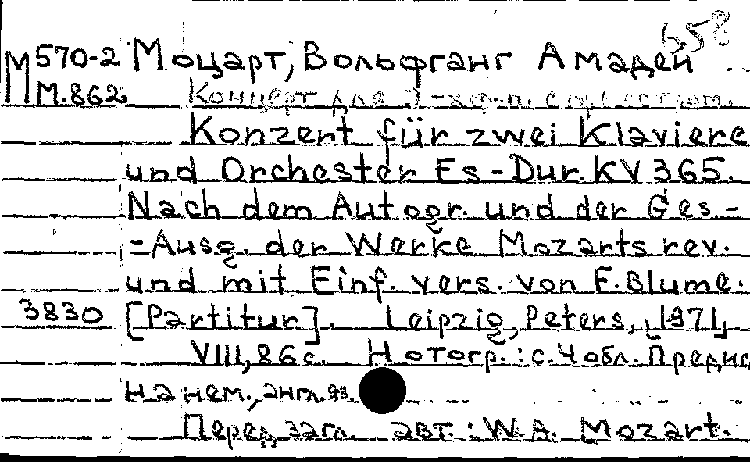 658
М 570-2 Моцарт, Вольфганг Амадей
М.862 Концерт для 2-х ф-п. с оркестром.
Konzert für zwei Klaviere
und Orchester Es-Dur. KV 365.
Nach dem Autogr. und der Ges.-
-Ausg. der Werke Mozarts rev.
und mit Einf. vers. von F. Blume.
3830 [Partitur]. Leipzig, Peters, [1971]
VIII, 86 с. Нотогр.: с. 4 обл. Предис
на нем., англ. яз.
Перед загл. авт.: W. A. Mozart.